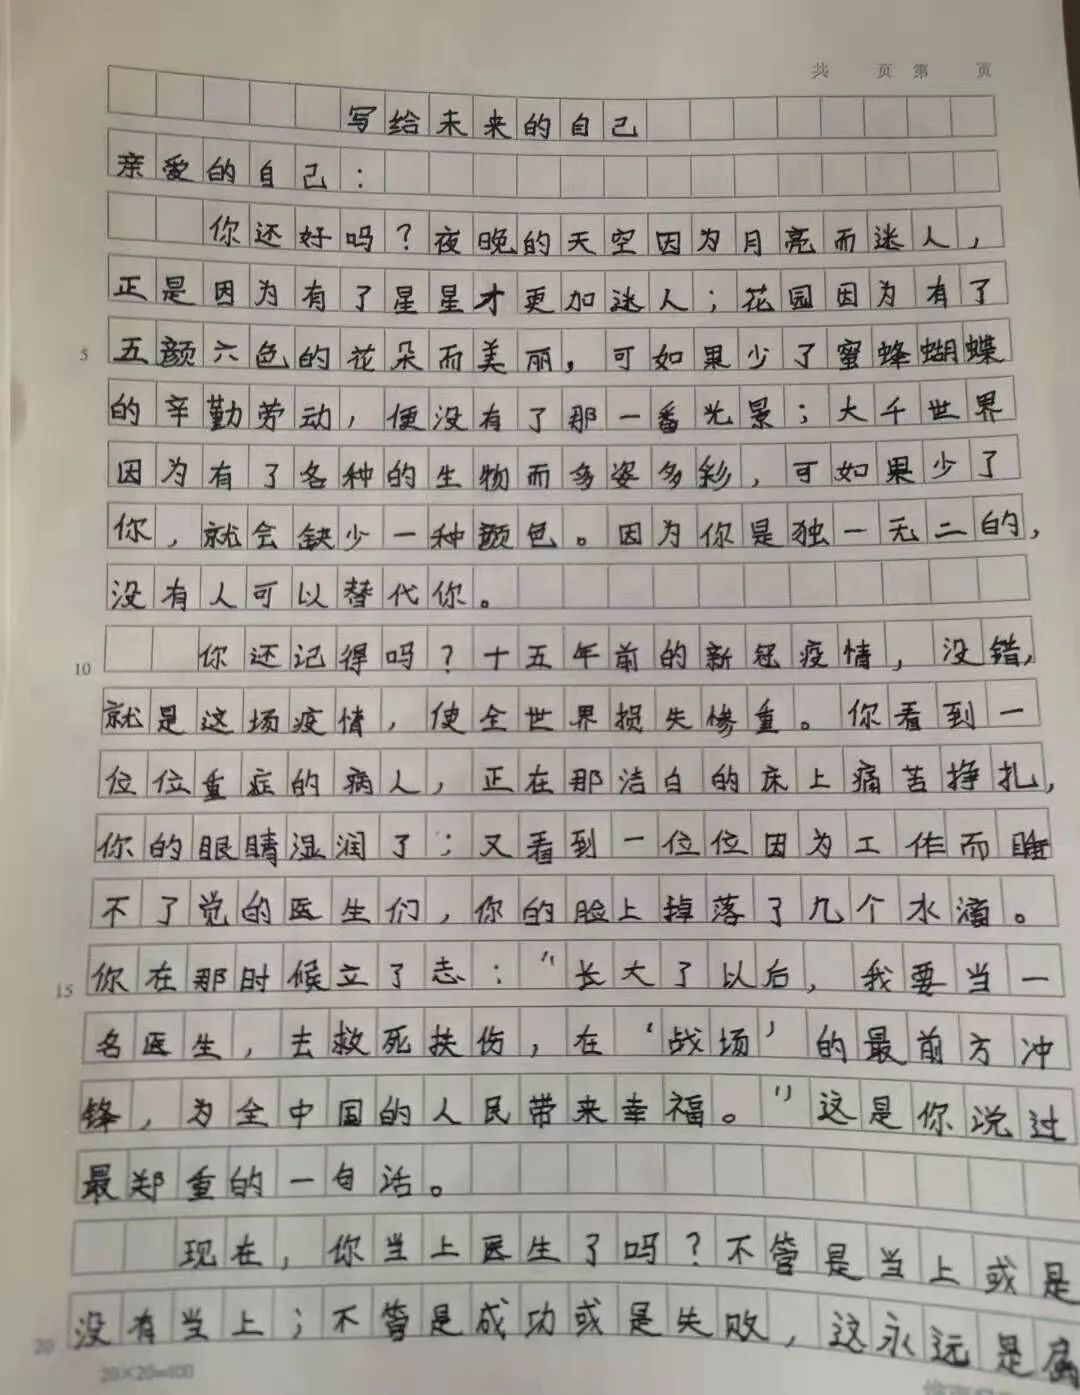 共 页 第 页
写给未来的自己
亲爱的自己：
你还好吗？夜晚的天空因为月亮而迷人，
正是因为有了星星才更加迷人；花园因为有了
5 五颜六色的花朵而美丽，可如果少了蜜蜂蝴蝶
的辛勤劳动，便没有了那一番光景；大千世界
因为有了各种的生物而多姿多彩，可如果少了
你，就会缺少一种颜色。因为你是独一无二的，
没有人可以替代你。
10 你还记得吗？十五年前的新冠疫情，没错，
就是这场疫情，使全世界损失惨重。你看到一
位位重症的病人，正在那洁白的床上痛苦挣扎，
你的眼睛湿润了；又看到一位位因为工作而睡
不了觉的医生们，你的脸上掉落了几个水滴。
15 你在那时候立了志：“长大了以后，我要当一
名医生，去救死扶伤，在‘战场’的最前方冲
锋，为全中国的人民带来幸福。”这是你说过
最郑重的一句话。
现在，你当上医生了吗？不管是当上或是
20 没有当上；不管是成功或是失败，这永远是属
20×20=400